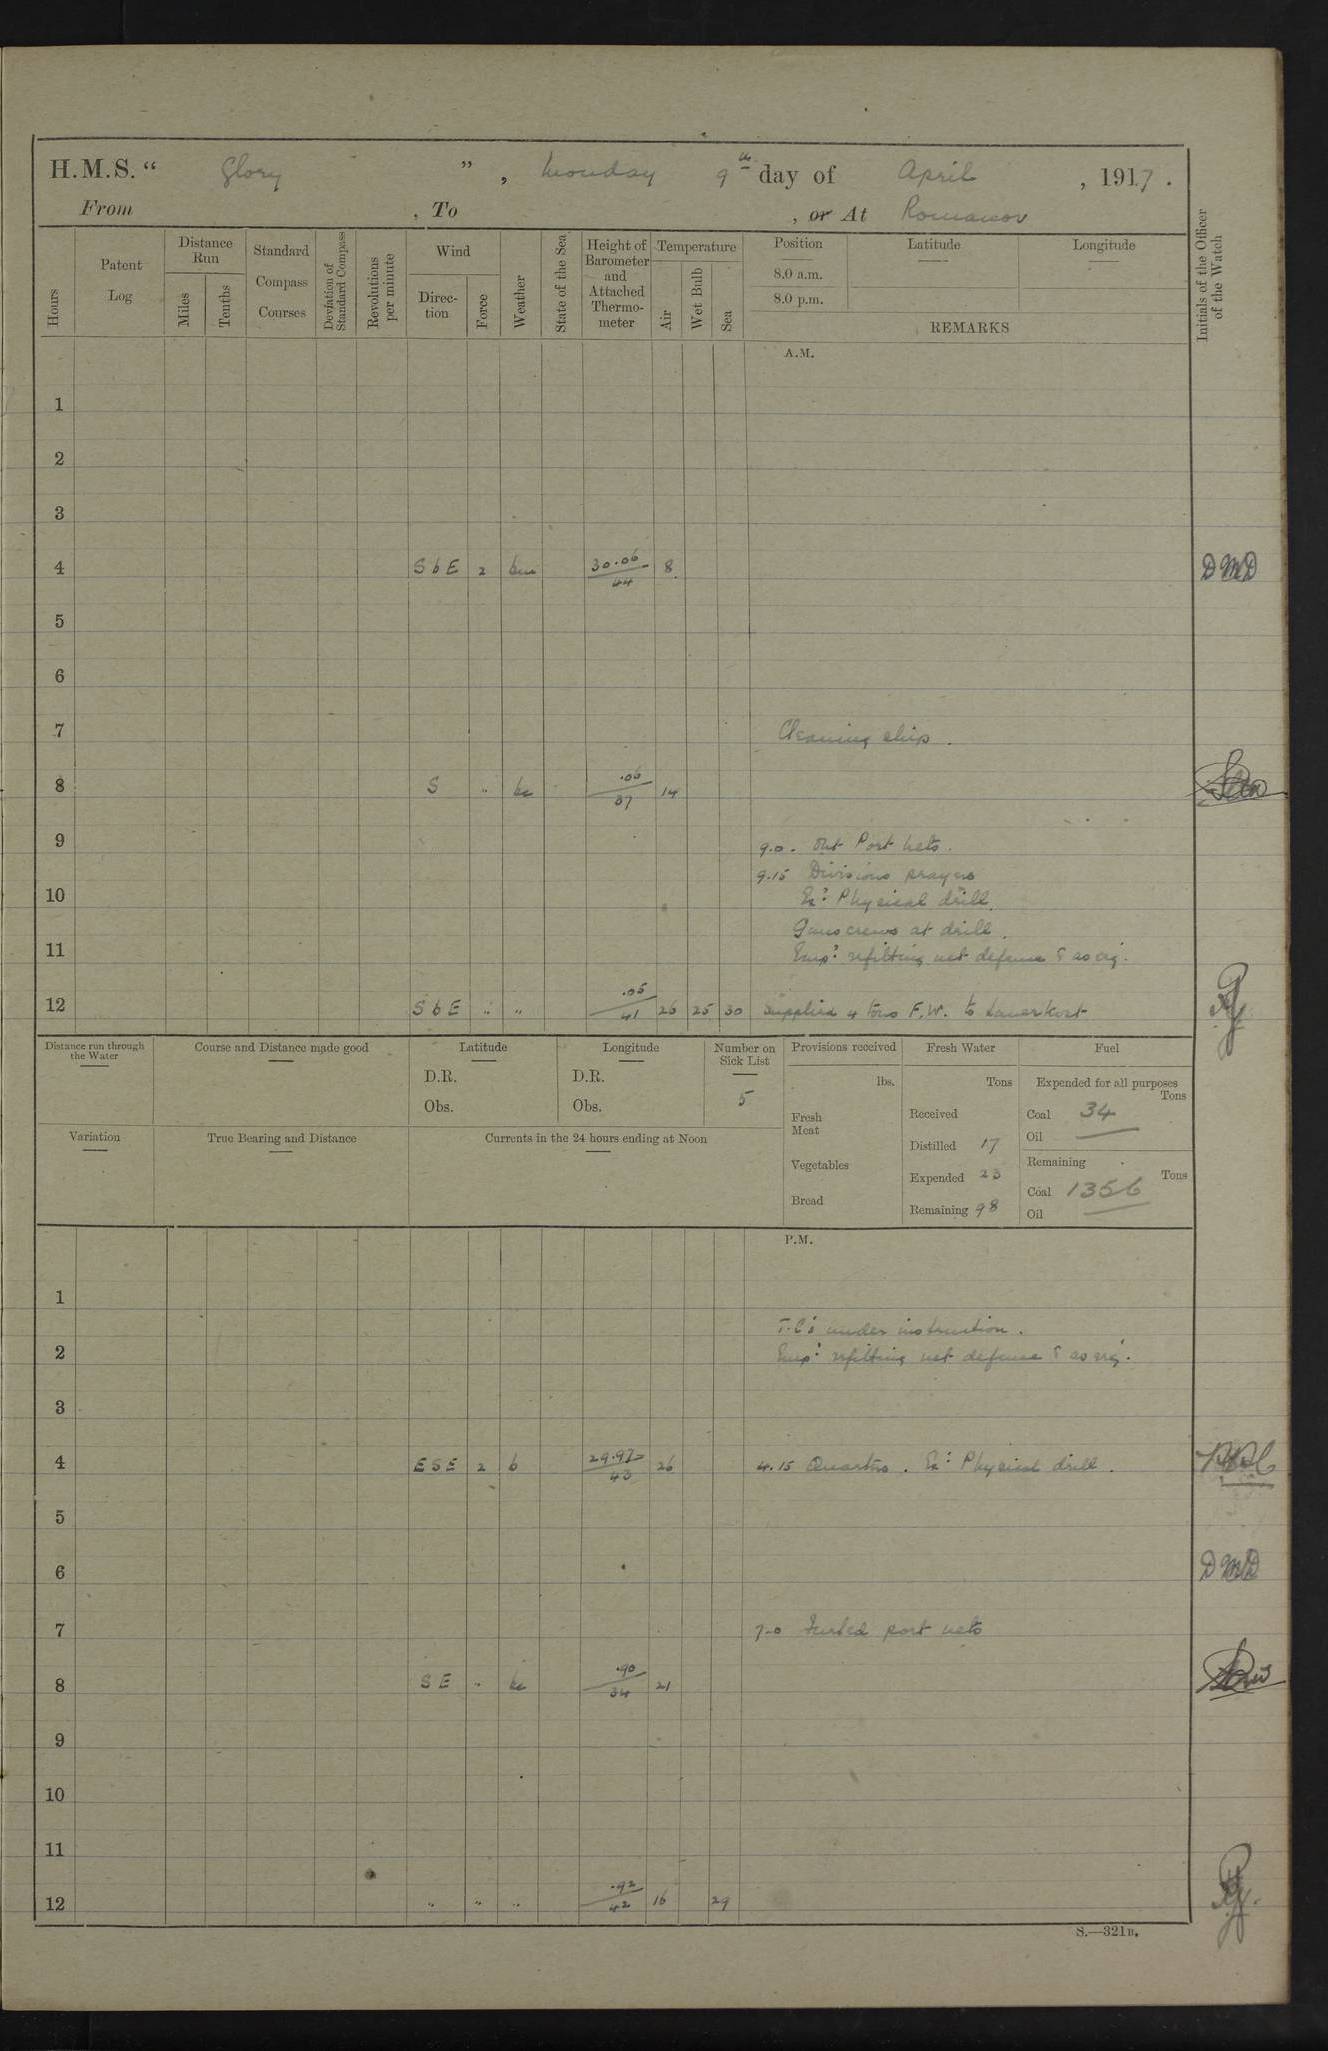 H.M.S. “ Glory ” , Monday 9th day of April , 1917 .
From , To , or At Romanov
Hours
Patent Log
Distance Run
Miles
Tenths
Standard Compass Courses
Deviation of Standard Compass
Revolutions per minute
Wind
Direction
Force
Weather
State of the Sea
Height of Barometer and Attached Thermometer
Temperature
Air
Wet Bulb
Sea
Position
8.0 a.m.
8.0 p.m.
Latitude
Longitude
REMARKS
Initials of the Officer of the Watch
A.M.
1
2
3
4 S b E 2 30.06 44 8 DMD
5
6
7 Cleaning ship .
8 S " bc .06 37 14
9 9.0 . Out Port nets .
9.15 Divisions prayers
10 Ex: Physical drill.
Guns crews at drill .
11 Emp: refitting net defence & as req.
12 S b E " " .05 41 26 25 30 Supplied 4 tons F.W. to
Distance run through the Water
Course and Distance made good
Latitude
D.R.
Obs.
Longitude
D.R.
Obs.
Number on Sick List
5
Provisions received
lbs.
Fresh Meat
Vegetables
Bread
Fresh Water
Tons
Received
Distilled 17
Expended 23
Remaining 98
Fuel
Expended for all purposes
Tons
Coal 34
Oil
Remaining
Tons
Coal 1356
Oil
Variation
True Bearing and Distance
Currents in the 24 hours ending at Noon
P.M.
1
T.C's under instruction .
2 Emp: refitting net defence & as req.
3
4 E S E 2 b 29.97 43 26 4.15 Quarters . Ex: Physical drill .
5
6 DMD
7 7.0 Furled port nets
8 S E " bc .90 34 21
9
10
11
12 " " " .92 42 16 29
S.—321B.